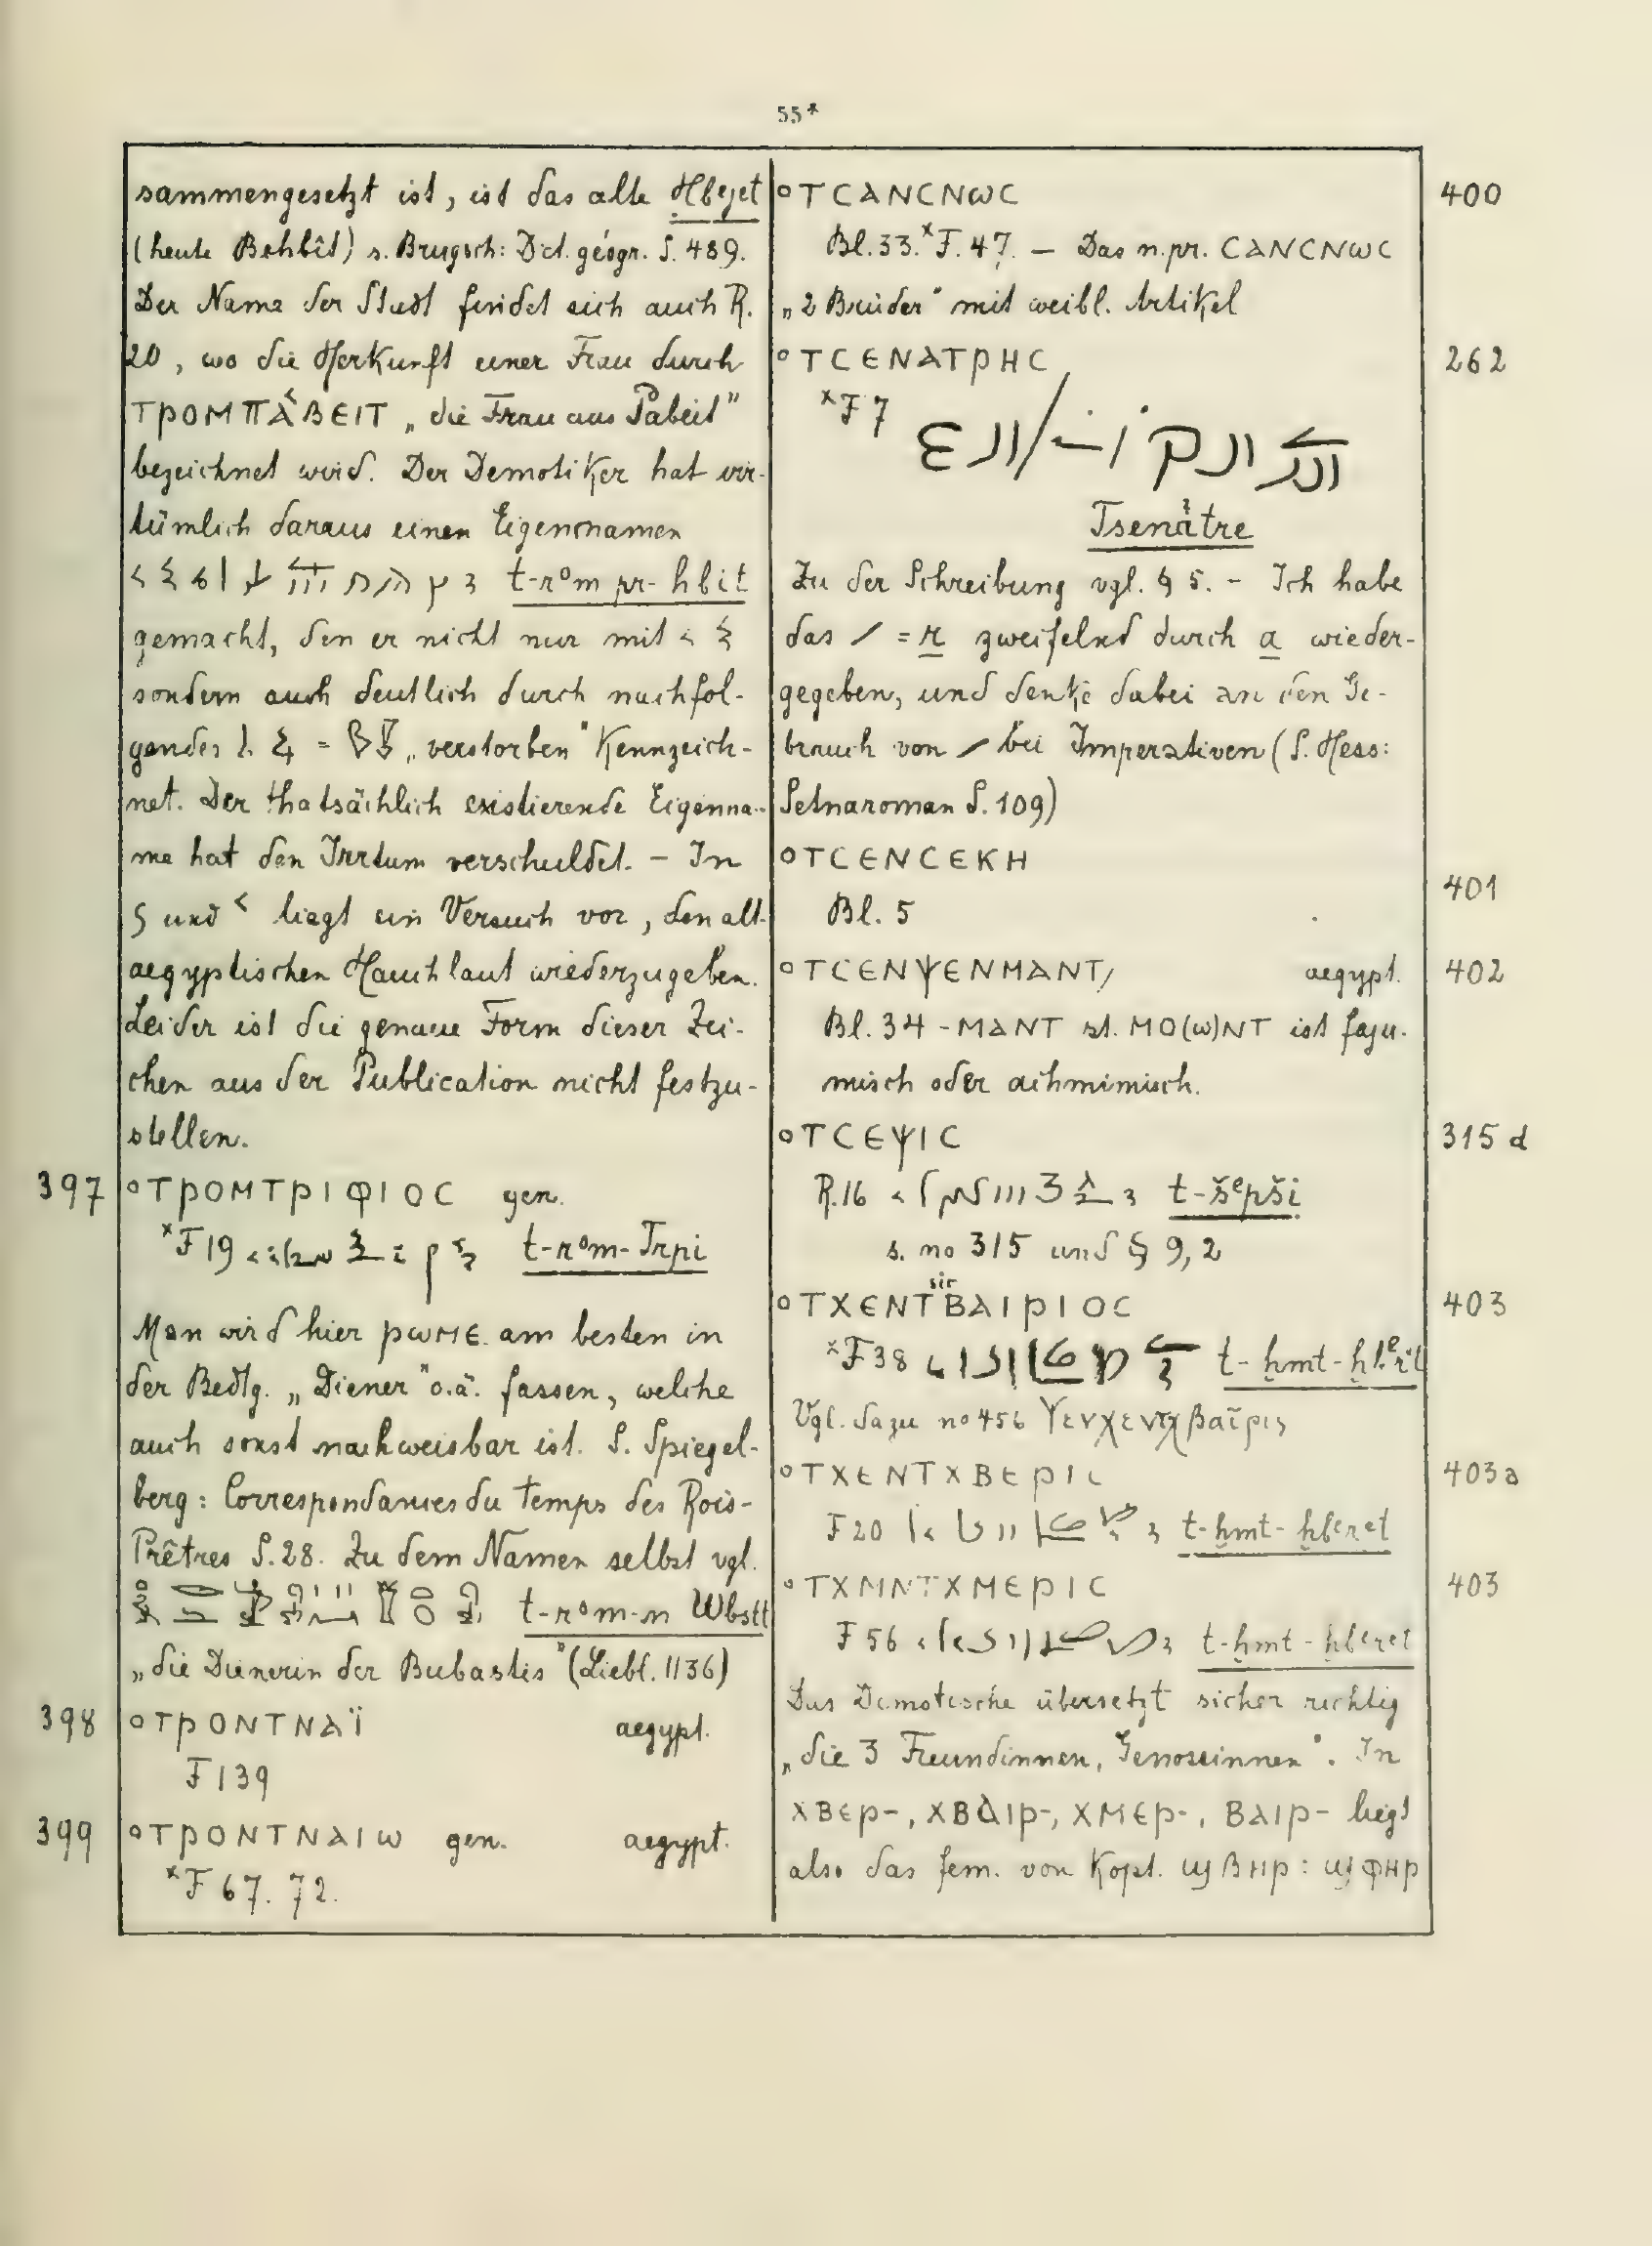 55*
sammengesetzt ist, ist das alte Ḥbejet
(heute Behbît) s. Brugsch: Dict. géogr. S. 489.
Der Name der Stadt findet sich auch R.
20, wo die Herkunft einer Frau durch
ΤΡΟΜΠΑΒΕΙΤ „die Frau aus Pabeit"
bezeichnet wird. Der Demotiker hat irr-
tümlich daraus einen Eigennamen
t-rᵒm pr-ḥbit
gemacht, den er nicht nur mit
sondern auch deutlich durch nachfol-
gendes = „verstorben" kennzeich-
net. Der thatsächlich existierende Eigenna-
me hat den Irrtum verschuldet. – In
und liegt ein Versuch vor, den alt-
aegyptischen Hauchlaut wiederzugeben.
Leider ist die genaue Form dieser Zei-
chen aus der Publication nicht festzu-
stellen.
397 °ΤΡΟΜΤΡΙΦΙΟC gen.
ˣF 19 t-rᵒm-Trpi
Man wird hier ⲣⲱⲙⲉ am besten in
der Bedtg. „Diener" o.ä. fassen, welche
auch sonst nachweisbar ist. S. Spiegel-
berg: Correspondances du temps des Rois-
Prêtres S. 28. Zu dem Namen selbst vgl.
t-rᵒm-n Wbstt
„die Dienerin der Bubastis" (Liebl. 1136)
398 °ΤΡΟΝΤΝΑΪ aegypt.
F 139
399 °ΤΡΟΝΤΝΑΙω gen. aegypt.
ˣF 67. 72.
°ΤCΑΝCΝωC 400
Bl. 33. ˣF. 47. – Das n. pr. CΑΝCΝωC
„2 Brüder" mit weibl. Artikel
°ΤCΕΝΑΤΡΗC 262
ˣF 7
Tsenatre
Zu der Schreibung vgl. § 5. – Ich habe
das / = r zweifelnd durch a wieder-
gegeben, und denke dabei an den Ge-
brauch von / bei Imperativen (S. Hess:
Setnaroman S. 109)
°ΤCΕΝCΕΚΗ 401
Bl. 5
°ΤCΕΝΨΕΝΜΑΝΤ/ aegypt. 402
Bl. 34 - ΜΑΝΤ st. ΜΟ(ω)ΝΤ ist faju-
misch oder achmimisch.
°ΤCΕΨΙC 315 d
R. 16 t-šᵉpši
s. no 315 und § 9, 2
sic
°ΤΧΕΝΤΒΑΙΡΙΟC 403
ˣF 38
Vgl. dazu no 456
°ΤΧΕΝΤΧΒΕΡΙC 403a
F 20 t-ḫmt-ḫbᵉret
°ΤΧΜΝΤΧΜΕΡΙC 403
F 56 t-ḫmt-ḫbᵉret
Das Demotische übersetzt sicher richtig
„die 3 Freundinnen, Genossinnen". In
ΧΒΕΡ-, ΧΒΑΙΡ-, ΧΜΕΡ-, ΒΑΙΡ- liegt
also das fem. von Kopt. ϣⲃⲏⲣ : ϣⲫⲏⲣ